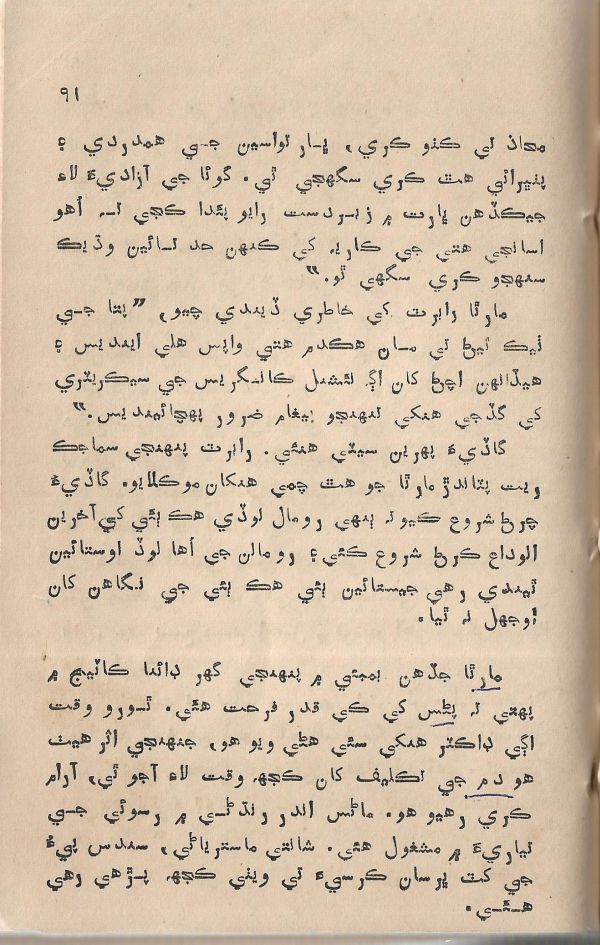 ٩١
محاذ تي کٽو ڪري، ڀارتواسين جي همدردي ۽
پٺيرائي هٿ ڪري سگهجي ٿي. گوئا جي آزاديءَ لاءِ
جيڪڏهن ڀارت ۾ زبردست رايو پئدا ڪجي ته اُهو
اسانجي هتي جي ڪاريه کي ڪنهن حد تائين وڌيڪ
سنهجو ڪري سگهي ٿو.“
مارٿا رابرٽ کي خاطري ڏيندي چيو، ”پتا جي
ٺيڪ ٿيڻ تي مان هڪدم هتي واپس هلي اينديس ۽
هيڏانهن اچڻ کان اڳ نئشنل ڪانگريس جي سيڪريٽري
کي گڏجي هنکي تنهنجو پيغام ضرور پهچائينديس.“
گاڏيءَ پهرين سيٽي هنئي. رابرٽ پنهنجي سماجڪ
ريت پٽاندڙ مارٿا جو هٿ چمي هنکان موڪلايو. گاڏيءَ
چرڻ شروع ڪيو ته ٻنهي رومال لوڏي هڪ ٻئي کي آخرين
الوداع ڪرڻ شروع ڪئي ۽ رومالن جي اُها لوڏ اوستائين
ٿيندي رهي جيستائين ٻئي هڪ ٻئي جي نگاهن کان
اوجهل نه ٿيا.
مارٿا جڏهن بمبئي ۾ پنهنجي گهر ڊائنا ڪاٽيج ۾
پهتي ته پڻس کي ڪي قدر فرحت هئي. ٿورو وقت
اڳي ڊاڪٽر هنکي سئي هڻي ويو هو، جنهنجي اثر هيٺ
هو دم جي تڪليف کان ڪجهه وقت لاءِ آجو ٿي، آرام
ڪري رهيو هو. ماڻس اندر رنڌڻي ۾ رسوئي جي
تياريءَ ۾ مشغول هئي. شانتي ماسترياڻي، سندس پيءُ
جي کٽ ڀرسان ڪرسيءَ تي ويٺي ڪجهه پڙهي رهي
هئي.